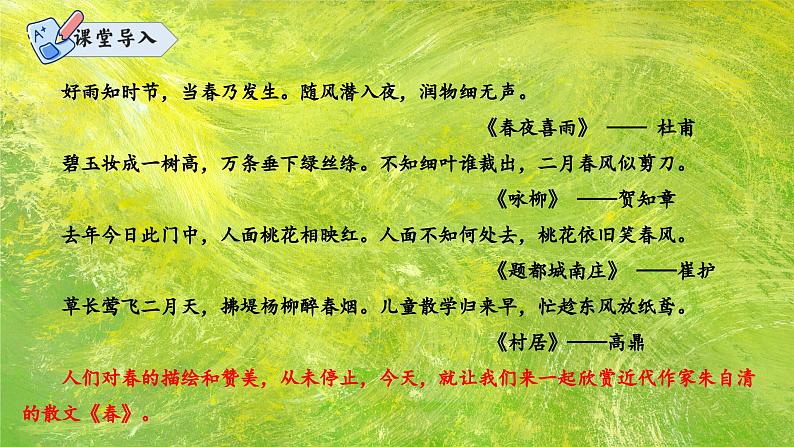 A+
课堂导入
好雨知时节，当春乃发生。随风潜入夜，润物细无声。
《春夜喜雨》 —— 杜甫
碧玉妆成一树高，万条垂下绿丝绦。不知细叶谁裁出，二月春风似剪刀。
《咏柳》 ——贺知章
去年今日此门中，人面桃花相映红。人面不知何处去，桃花依旧笑春风。
《题都城南庄》 ——崔护
草长莺飞二月天，拂堤杨柳醉春烟。儿童散学归来早，忙趁东风放纸鸢。
《村居》——高鼎
人们对春的描绘和赞美，从未停止，今天，就让我们来一起欣赏近代作家朱自清
的散文《春》。